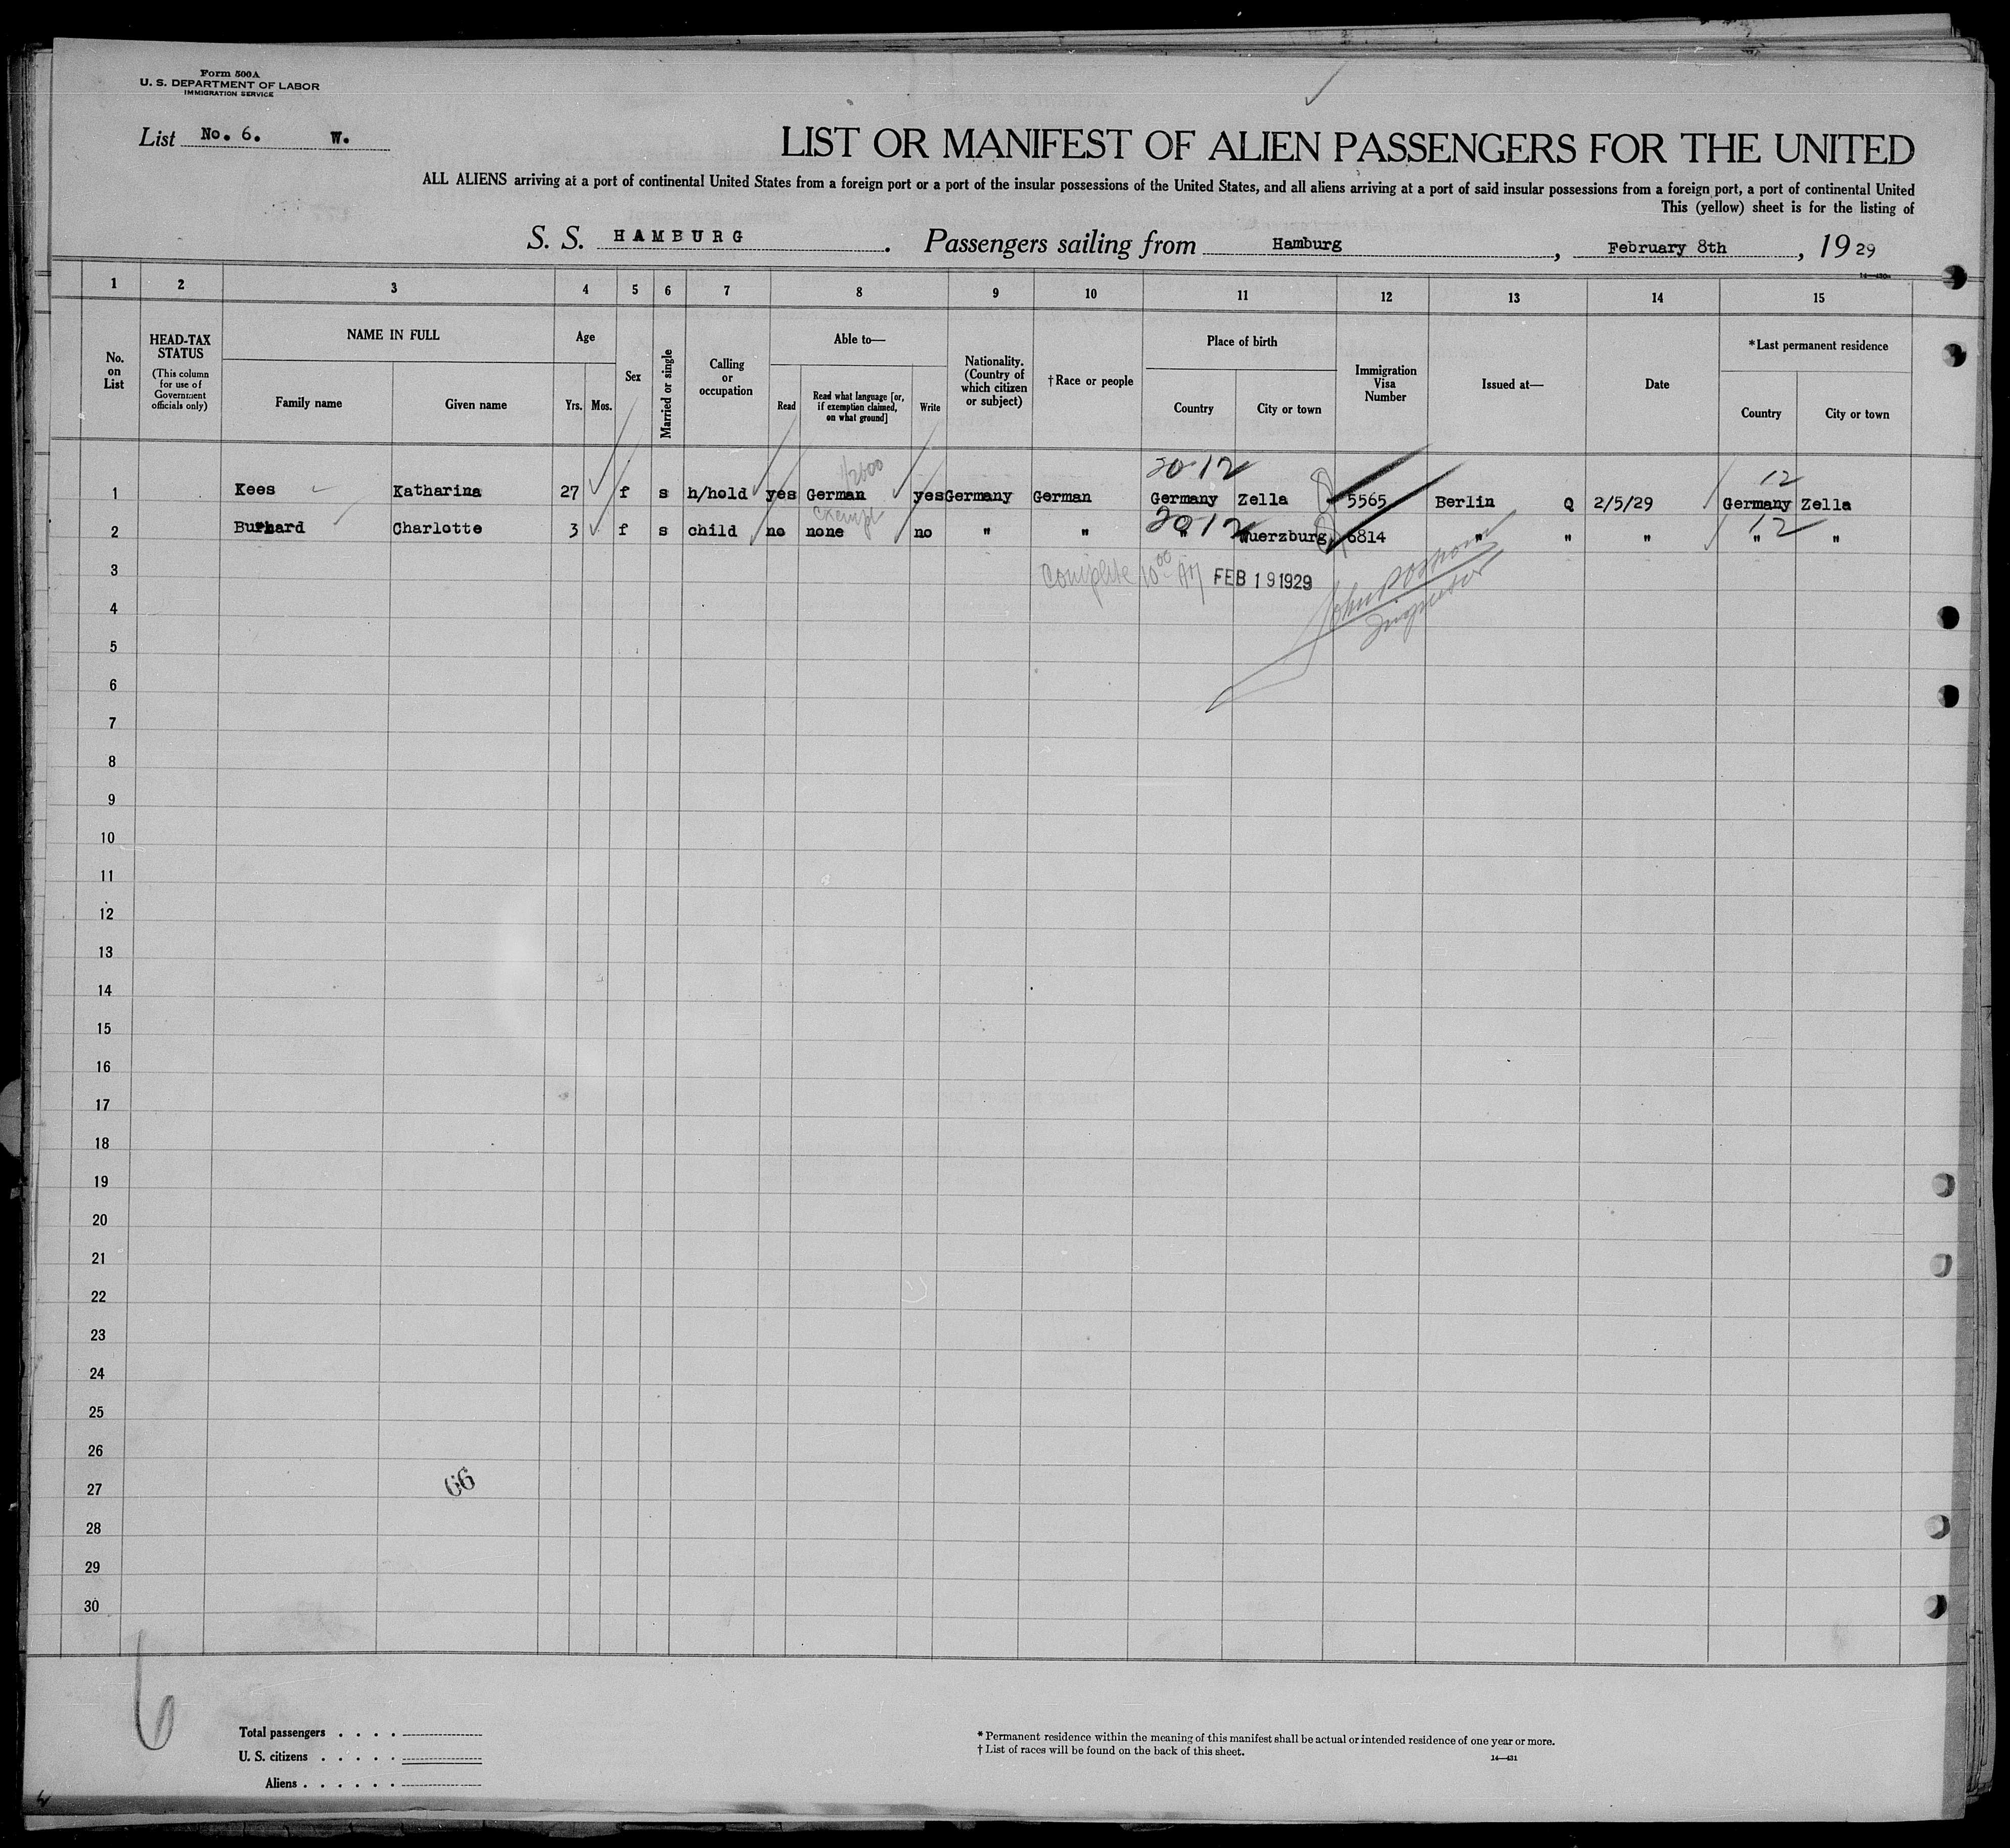 Form 500A
U. S. DEPARTMENT OF LABOR
IMMIGRATION SERVICE
List No. 6. W.
LIST OR MANIFEST OF ALIEN PASSENGERS FOR THE UNITED
ALL ALIENS arriving at a port of continental United States from a foreign port or a port of the insular possessions of the United States, and all aliens arriving at a port of said insular possessions from a foreign port, a port of continental United
This (yellow) sheet is for the listing of
S. S. HAMBURG. Passengers sailing from Hamburg, February 8th, 1929
1 2 3 4 5 6 7 8 9 10 11 12 13 14 15
No. on List
HEAD-TAX STATUS
(This column for use of Government officials only)
NAME IN FULL
Family name
Given name
Age
Yrs.
Mos.
Sex
Married or single
Calling or occupation
Able to—
Read
Read what language [or, if exemption claimed, on what ground]
Write
Nationality. (Country of which citizen or subject)
†Race or people
Place of birth
Country
City or town
Immigration Visa Number
Issued at—
Date
*Last permanent residence
Country
City or town
20 12 12
1 Kees Katharina 27 f s h/hold yes German yes Germany German Germany Zella 5565 Berlin Q 2/5/29 Germany Zella
exempt 20 12 12
2 Burhard Charlotte 3 f s child no none no " " " Wuerzburg 6814 " " " " "
3 Complete 10 00 AM FEB 19 1929
John
4 Inspector
5
6
7
8
9
10
11
12
13
14
15
16
17
18
19
20
21
22
23
24
25
26
66
27
28
29
30
6
Total passengers . . . .
U. S. citizens . . . . .
Aliens . . . . . .
* Permanent residence within the meaning of this manifest shall be actual or intended residence of one year or more.
† List of races will be found on the back of this sheet.
14—431